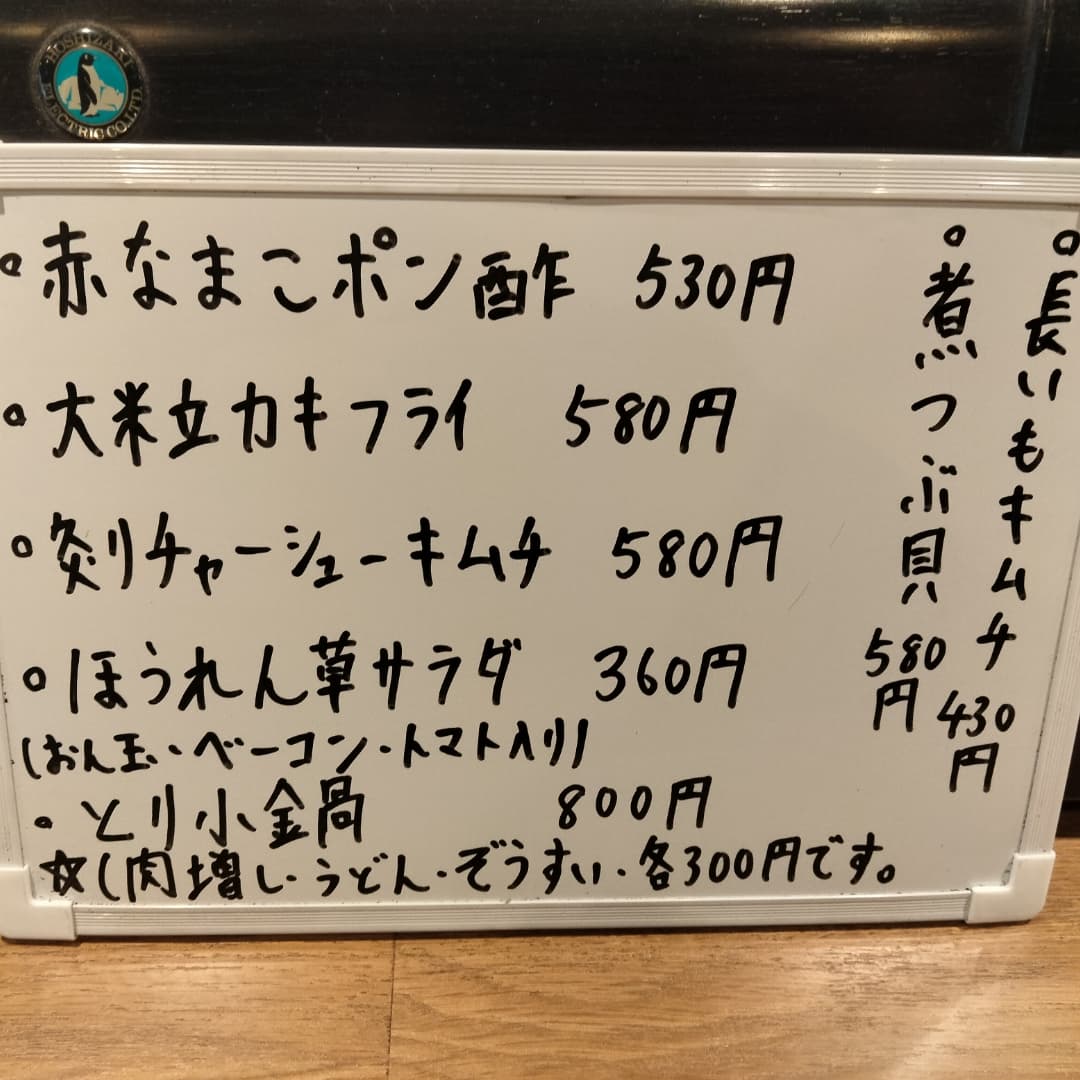 HOSHIZAKI ELECTRIC CO.,LTD.
。赤なまこポン酢 530円
。大粒カキフライ 580円
。炙りチャーシューキムチ 580円
。ほうれん草サラダ 360円
(おん玉・ベーコン・トマト入り)
。とり小鍋 800円
☆(肉増し・うどん・ぞうすい・各300円です。
。長いもキムチ 430円
。煮つぶ貝 580円